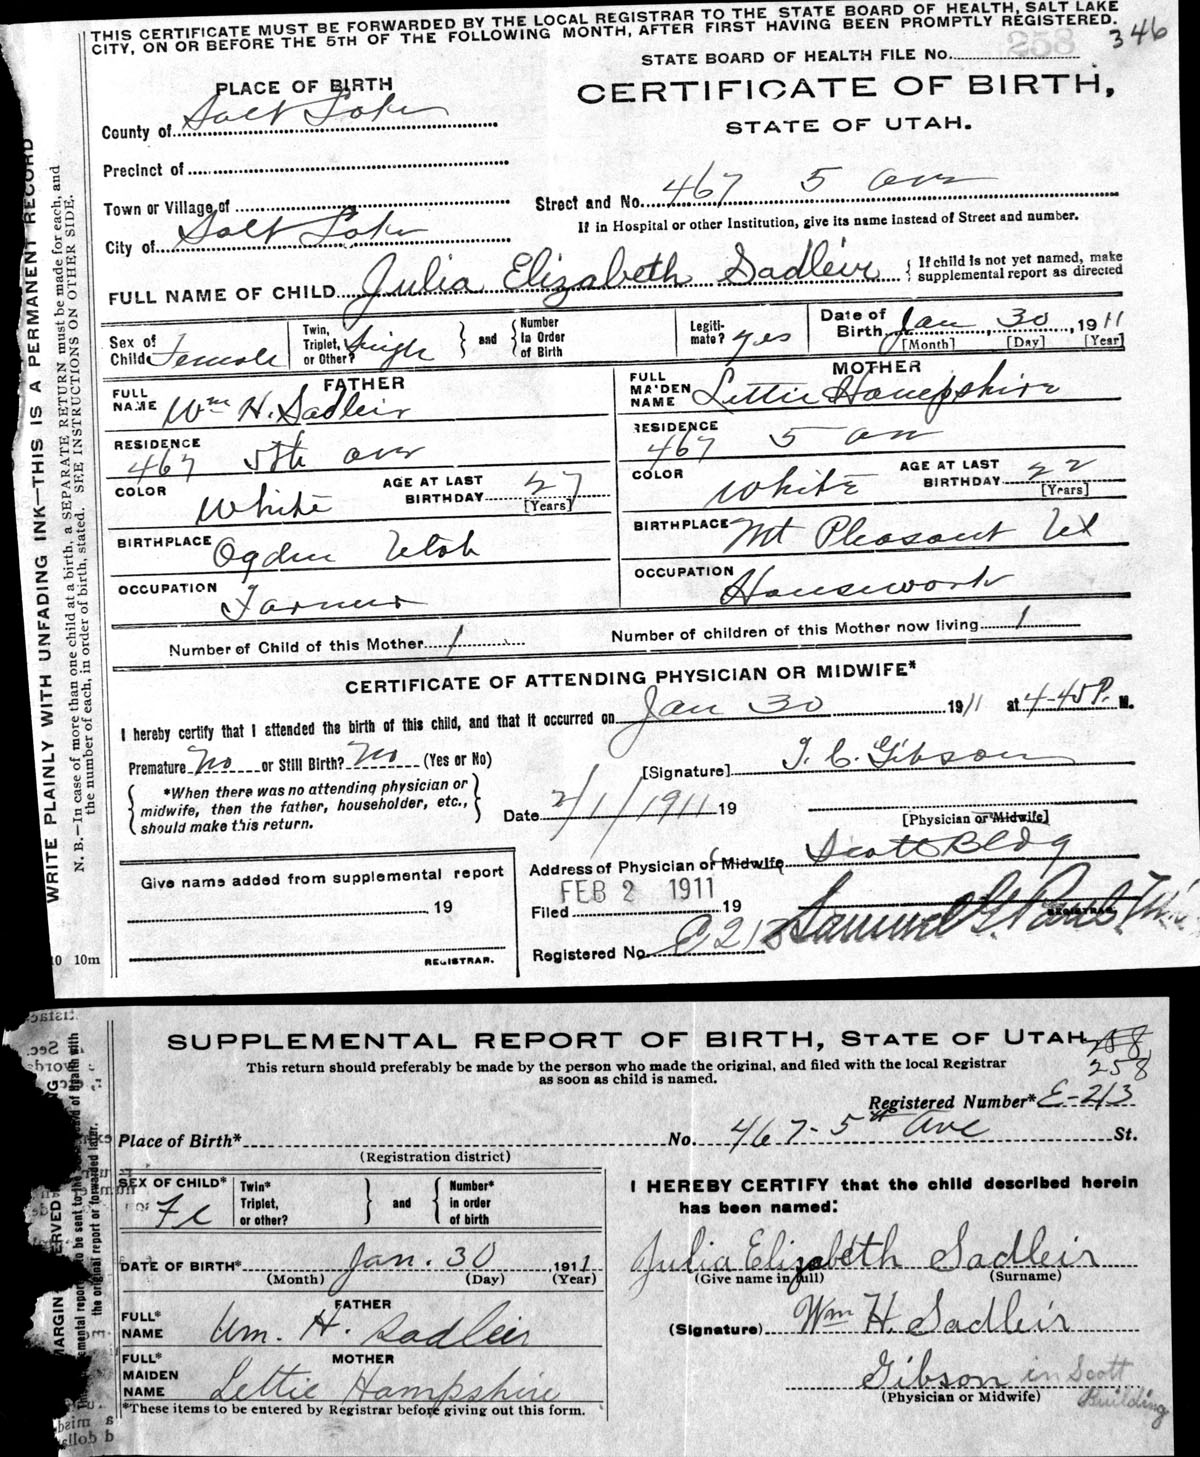 THIS CERTIFICATE MUST BE FORWARDED BY THE LOCAL REGISTRAR TO THE STATE BOARD OF HEALTH, SALT LAKE
CITY, ON OR BEFORE THE 5TH OF THE FOLLOWING MONTH, AFTER FIRST HAVING BEEN PROMPTLY REGISTERED.
346
STATE BOARD OF HEALTH FILE No. 258
PLACE OF BIRTH
CERTIFICATE OF BIRTH,
STATE OF UTAH.
County of Salt Lake
Precinct of
Town or Village of
Street and No. 467 5 ave
If in Hospital or other Institution, give its name instead of Street and number.
City of Salt Lake
FULL NAME OF CHILD Julia Elizabeth Sadleir
If child is not yet named, make
supplemental report as directed
Sex of
Child Female
Twin,
Triplet,
or Other? Single
and
Number
in Order
of Birth
Legiti-
mate? yes
Date of
Birth Jan 30, 1911
[Month] [Day] [Year]
FATHER
FULL
NAME Wm H. Sadleir
RESIDENCE
467 5th ave
COLOR White
AGE AT LAST
BIRTHDAY 27
[Years]
BIRTHPLACE Ogden Utah
OCCUPATION Farmer
MOTHER
FULL
MAIDEN
NAME Lettie Hampshire
RESIDENCE
467 5 ave
COLOR White
AGE AT LAST
BIRTHDAY 22
[Years]
BIRTHPLACE Mt Pleasant Ut
OCCUPATION Housework
Number of Child of this Mother 1
Number of children of this Mother now living 1
CERTIFICATE OF ATTENDING PHYSICIAN OR MIDWIFE*
I hereby certify that I attended the birth of this child, and that it occurred on Jan 30 1911 at 4-45 P. M.
Premature No or Still Birth? No (Yes or No)
[Signature] T. C. Gibson
*When there was no attending physician or
midwife, then the father, householder, etc.,
should make this return.
Date 2/1/1911 19
[Physician or Midwife]
Address of Physician or Midwife Scott Bldg
Give name added from supplemental report
19
REGISTRAR.
FEB 2 1911
Filed 19
REGISTRAR.
Registered No. E 213
10 10m
WRITE PLAINLY WITH UNFADING INK—THIS IS A PERMANENT RECORD
N. B.—In case of more than one child at a birth, a SEPARATE RETURN must be made for each, and
the number of each, in order of birth, stated. SEE INSTRUCTIONS ON OTHER SIDE.
SUPPLEMENTAL REPORT OF BIRTH, STATE OF UTAH
258
258
This return should preferably be made by the person who made the original, and filed with the local Registrar
as soon as child is named.
Registered Number* E-213
Place of Birth* No. 467-5th Ave St.
(Registration district)
SEX OF CHILD*
Fe
Twin*
Triplet,
or other?
and
Number*
in order
of birth
I HEREBY CERTIFY that the child described herein
has been named:
Julia Elizabeth Sadleir
(Give name in full) (Surname)
DATE OF BIRTH* Jan. 30 1911
(Month) (Day) (Year)
FATHER
FULL*
NAME Wm. H. Sadleir
(Signature) Wm H. Sadleir
MOTHER
FULL*
MAIDEN
NAME Lettie Hampshire
Gibson in Scott
Building
(Physician or Midwife)
*These items to be entered by Registrar before giving out this form.